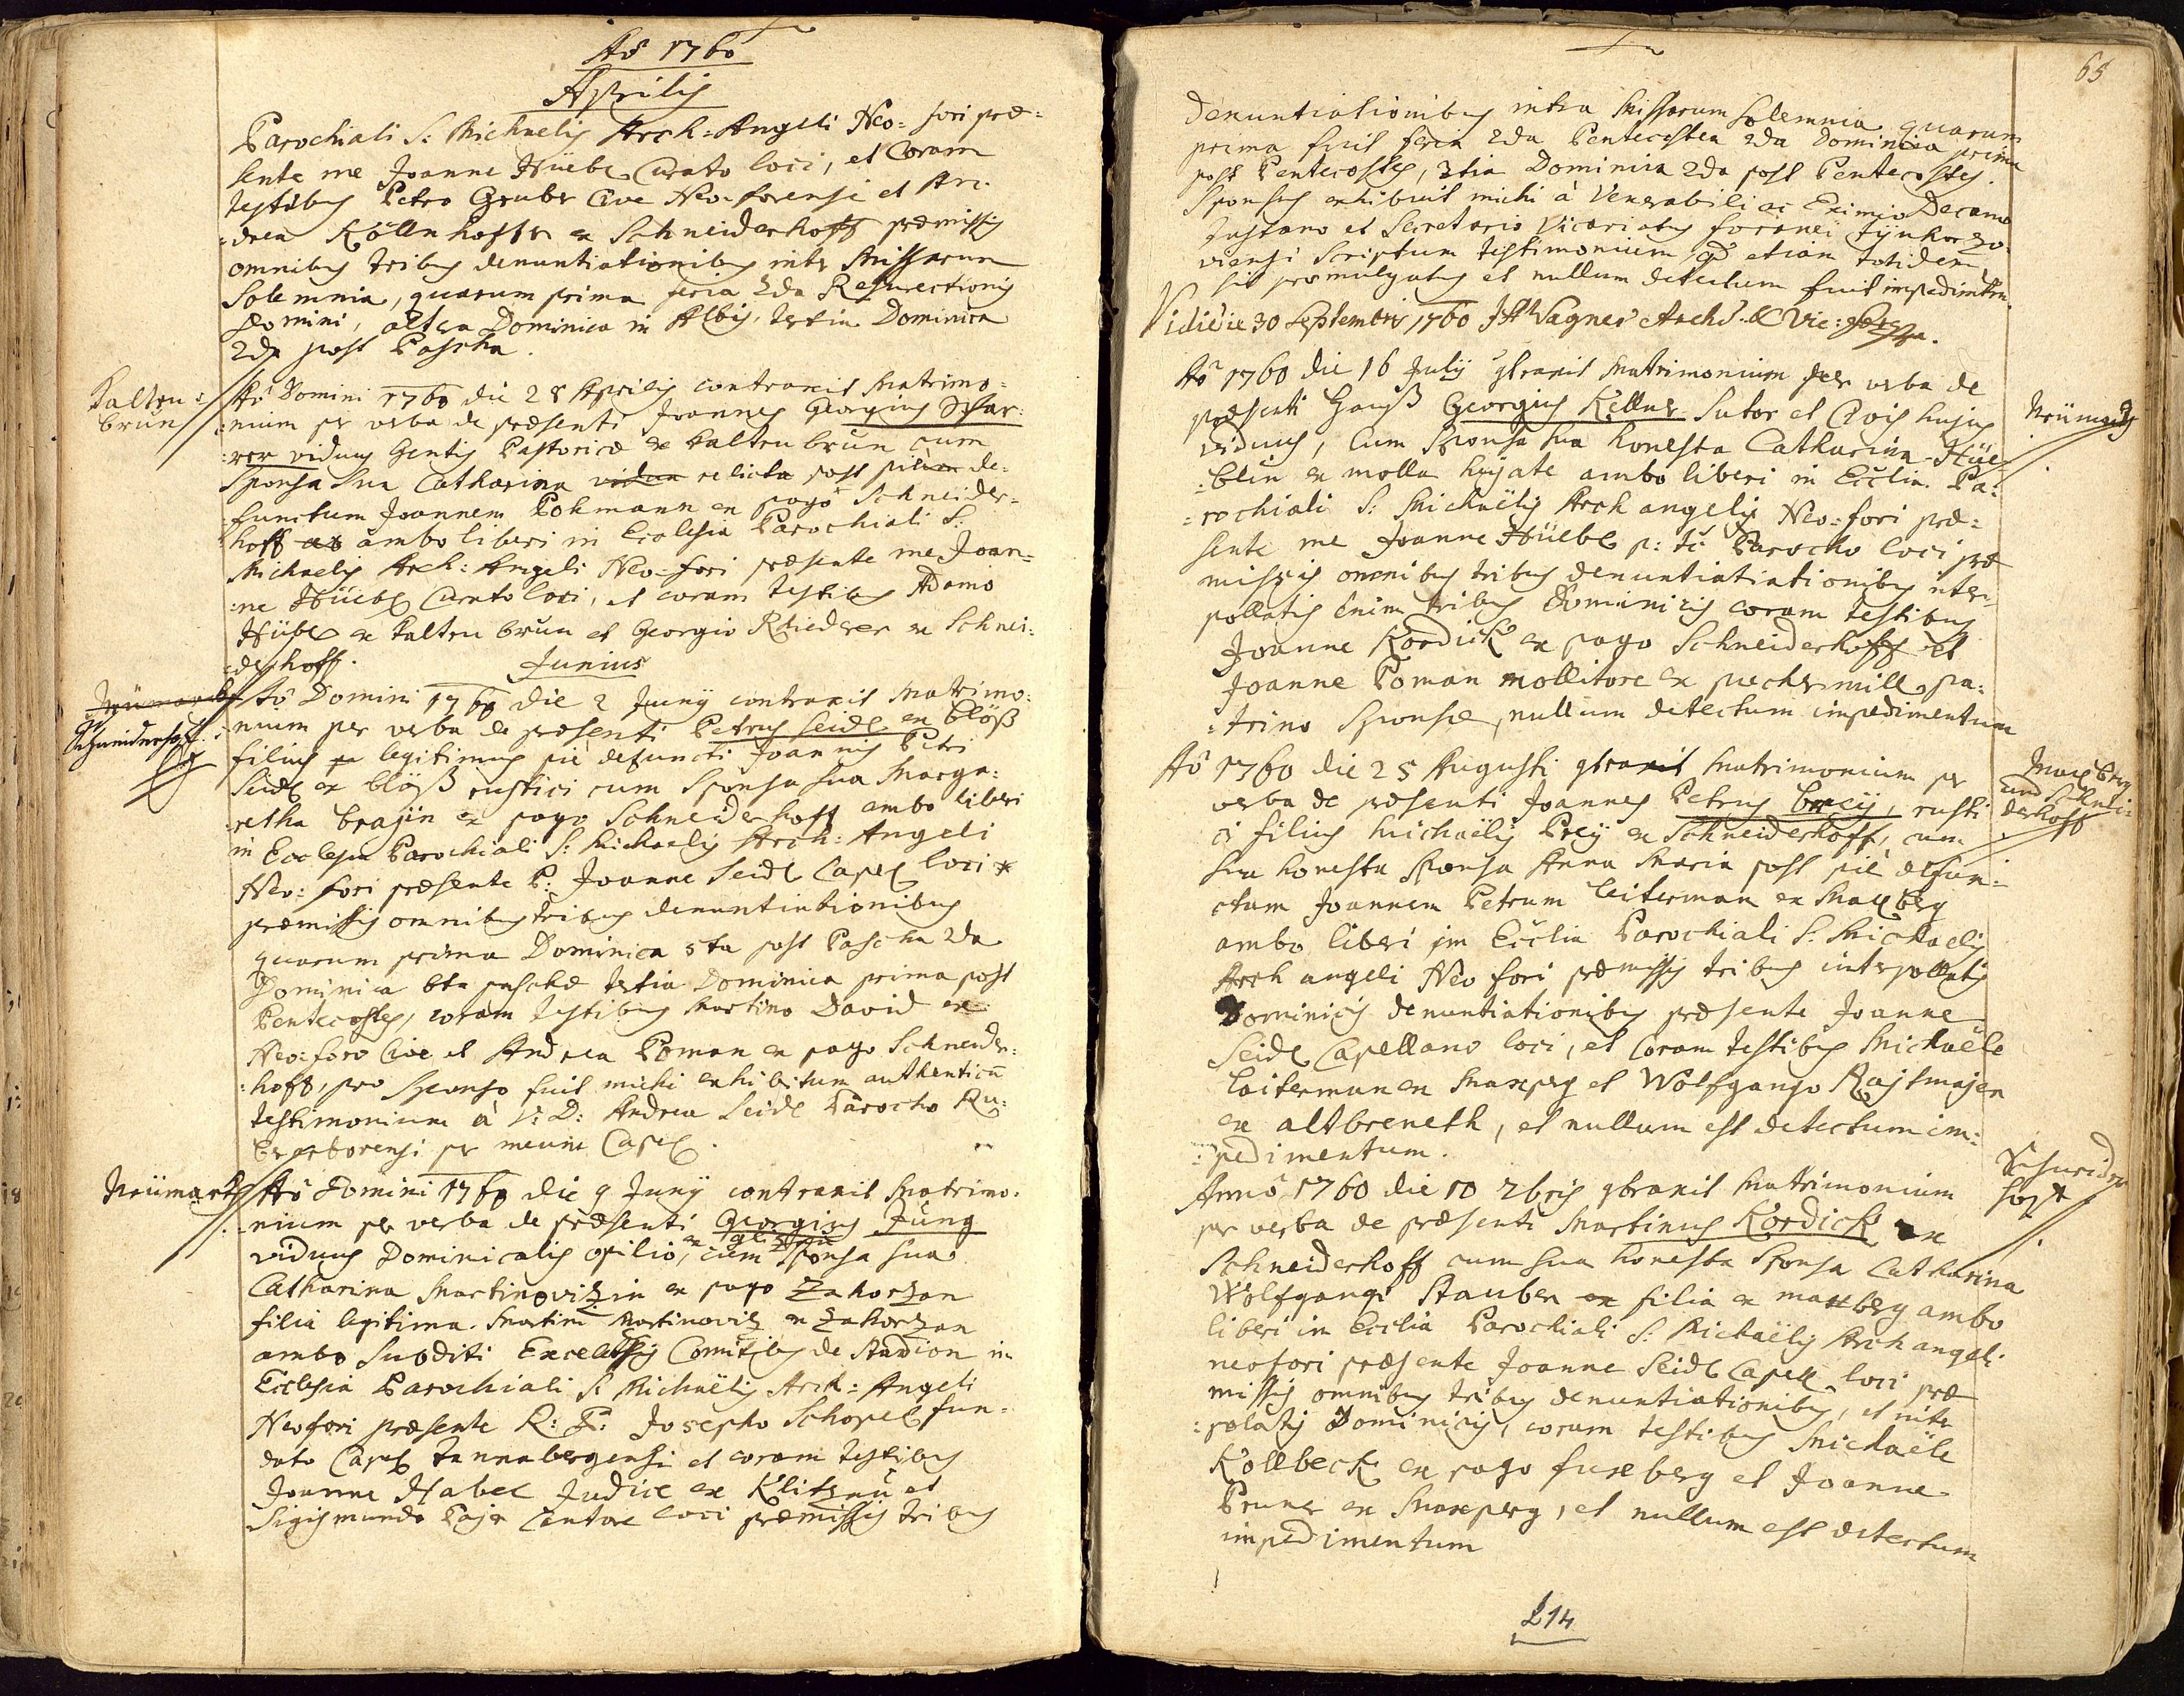 Aõ 1760
Aprilis
Parochiali S: Michaelis Arch=Angeli Neo=fori præ=
sente me Joanne Hüebl Curato loci, et Coram
testibus Petro Gruber Cive Neo-forensi et An:
=drea Köllnhoffer ex Schneiderhoff præmissis
omnibus tribus denuntiationibus inter Missarum
Solemnia, quarum prima feria 2da Resurectionis
Domini, altera Dominica in Albis, tertia Dominica
2da post Pascha.
Kalten=
brun
Aõ Domini 1760 die 28 Aprilis contraxit Matrimo=
:nium per verba de præsenti Joannes Georgius
:rer viduus Gentis Pastoricæ ex Kaltenbrun cum
Sponsa Sua Catharina vidua relicta post piè de=
functum Joannem Pohmann ex pago Schneider=
hoff ambo liberi in Ecclesia Parochiali S:
Michaelis Arch: Angeli Neo-fori præsente me Joan=
:ne Hüebl Curato loci, et coram testibus Adamo
Hüebl ex Kaltenbrun et Georgio Riederer ex Schnei:
:derhoff.
Junius
Neümarck
Schneiderhoff
Aõ Domini 1760 die 2 Junÿ contraxit Matrimo:
nium per verba de præsenti Petrus Seidl ex blöß
filius legitimus piè defuncti Joannis Petri
Seidl ex blöß rustici cum Sponsa sua Marga:
:retha brajin ex pago Schneiderhoff ambo liberi
in Ecclesia Parochiali S: Michaelis Arch: Angeli
Neo: fori præsente P: Joanne Seidl Capel loci *
præmissis omnibus tribus denuntiationibus
quarum prima Dominica 5ta post Pascha 2da
Dominica 6ta paschæ tertia Dominica prima post
Pentecostes, coram testibus Martino David ex
Neo:foro Cive et Andrea Poman ex pago Schneider:
:hoff, pro Sponso fuit michi exhibitum authenticũ
testimonium à V: D: Andrea Seidl Parocho Ru:
per meum Capel.
Neümarck
Aõ Domini 1760 die 9 Junÿ contraxit Matrimo:
:nium per verba de præsenti Georgius Jung
viduus Dominicalis opilio, cum Sponsa sua
Catharina Martinovizin ex pago Zahorzan
filia legitima Martini Martinoviz ex Zahorzan
ambo Subditi Excelsis Comitibus de Stadion in
Ecclesia Parochiali S: Michaëlis Arch: Angeli
Neofori præsente R: P: Josepho Schopel fun-
dato Capel tannabergensi et coram testibus
Joanne Habel Judice ex Klitzau et
Sigismundo Pajer Cantore loci præmissis tribus
65
denuntiationibus intra Missarum Solemnia quarum
prima fuit feria 2da Pentecostea 2da Dominica prima
post Pentecostes, 3tia Dominica 2da post Pentecostes.
Sponsus exhibuit michi à Venerabili ac Eximio Decano
Justano et Secretario Vicariatus foranei
viensi Scriptum testimonium qd etiam totidem
sit promulgatus et nullum detectum fuit impedimtm.
Vidi die 30 Septembris 1760 Wagner Archid. & Vic:
Aõ 1760 die 16 Julÿ qtraxit Matrimonium per verba de
præsenti Georgius Kellner Sutor et Civis hujus
viduus, Cum Sponsa sua honesta Catharina Hüe=
:blin ex molla hujate ambo liberi in Ecclia Pa:
:rochiali S: Michaëlis Arch angelis Neo=fori præ=
sente me Joanne Hüebl p: tẽ Parocho loci præ
missis omnibus tribus denuntiatiationibus inter=
pollatis enim tribus Dominicis coram testibus
Joanne Kordick ex pago Schneiderhoff et
Joanne Poman mollitore ex pechermill, pa:
:trino Sponsæ, nullum detectum impedimentum
Neümarck
Aõ 1760 die 25 Augusti qtraxit Matrimonium per
verba de præsenti Joannes Petrus breÿ, rusti
ci filius Michaëlis Preÿ ex Schneiderhoff, cum
sua honesta Sponsa Anna Maria post piè defun:
ctum Joannem Petrum leiterman ex Maxberg
ambo liberi in Ecclia Parochiali S: Michaelis
Arch angeli Neo fori præmissis tribus interpollatis
Dominicis denuntiationibus præsente Joanne
Seidl Capellano loci, et Coram testibus Michaële
Leiterman ex Maxperg et Wolfgango Rajtmajer
ex altbreneth, et nullum est detectum im:
:pedimentum.
Maxberg
und Schnei:
derhoff
Anno 1760 die 10 7bris qtraxit Matrimonium
per verba de præsenti Martinus Kordick ex
Schneiderhoff cum sua honesta Sponsa Catharina
Wolfgangi Stauber filia ex maxberg ambo
liberi in Ecclia Parochiali S: Michaëlis Arch angeli
neofori præsente Joanne Seidl Capell loci præ
missis omnibus tribus denuntiationibus, et inter
:polatis Dominicis, coram testibus Michaële
Kollbeck ex pago fuxberg et Joanne
Pruner ex Maxperg, et nullum est detectum
impedimentum
Schneider
hoff
214